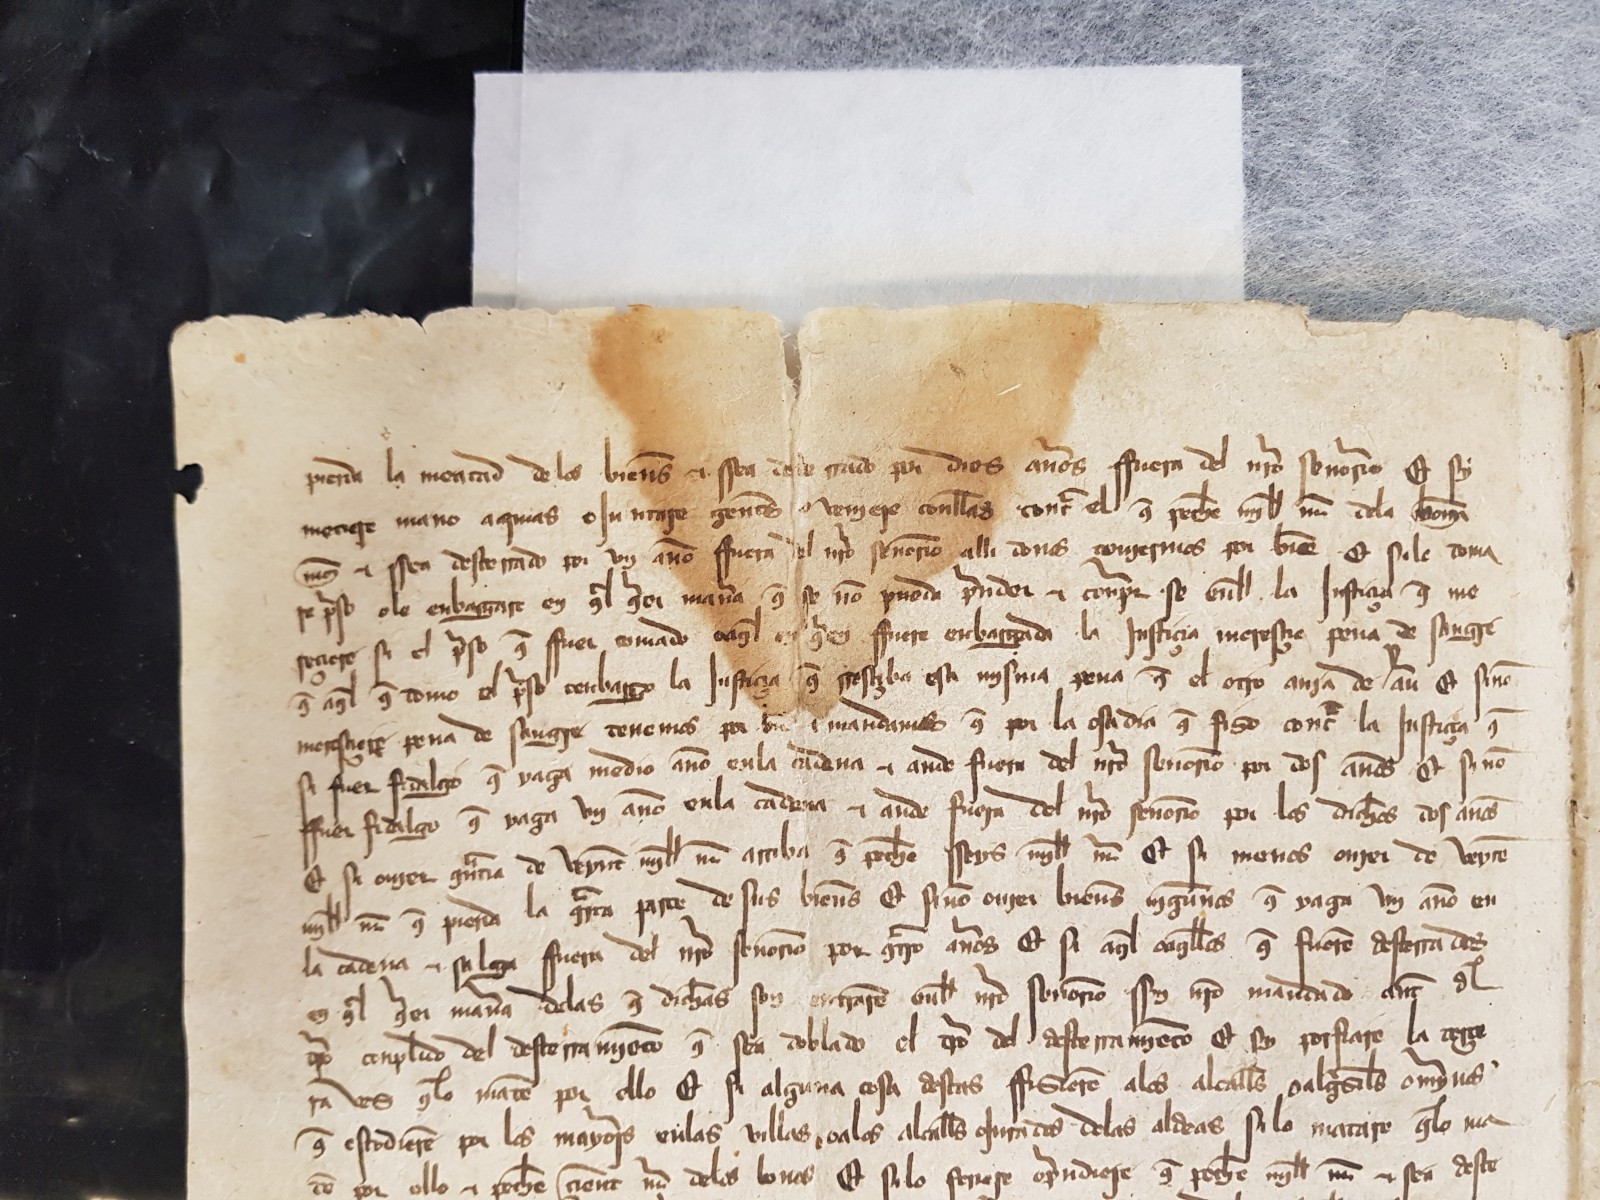 pierda la meatad de los bienes et ssea desterrado por dies años ffuera del nr̃o señorio Et sy
metiere mano a armas o Juntare gentes o veniere con ellas contra el q̃ peche mill mr̃ dela moneda
et ssea desterrado por vn año ffuera del nr̃o señorio alli donde touieremos por bien Et si le toma
re p̃so o le enbargare en q̃l q̃er maña q̃ se non pueda p̃nder et conplir se enl la Justiçia q̃ me
reçiere si el p̃so q̃ ffuer tomado o aq̃l en q̃en ffuere enbargada la Justiçia meresçie pena de sangre
q̃ aq̃l q̃ tomo el p̃so o enbargo la Justiçia q̃ rresçiba esta mysma pena q̃ el otro auja de auer Et si non
meresçiere pena de sangre tenemos por bien et mandamos q̃ por la osadia q̃ fiso contra la Justiçia q̃
si fuer fidalgo q̃ yaga medio año en la cadena et ande fuera del nr̃o señorio por dos años Et si non
ffuer fidalgo q̃ yaga vn año en la cadena et ande fuera del nr̃o señorio por los dichos dos años
Et si oujer quantia de veynte mill mr̃ arriba q̃ peche sseys mill mr̃ Et si menos oujer de veynte
mill mr̃ q̃ pierda la quarta parte de sus bienes Et si non oujer bienes njngunos q̃ yaga vn año en
la cadena et salga ffuera del nr̃o señorio por quatro años Et si aq̃l o aq̃llos q̃ fueren desterrados
en q̃l q̃er maña delas q̃ dichas son entraren enl nr̃o señorio ssyn nr̃o mandado ante del
tp̃o conplido del desterramjento q̃ sea doblado el tp̃o del desterramjento Et sy porfiare la terçe
ra ves q̃ lo maten por ello Et si alguna cosa destas ffisieren alos alcalles o alguasiles o merinos
q̃ estodieren por los mayores en las villas o alos alcalles o jurados delas aldeas si lo matare q̃ lo ma
ten por ello et peche çient mr̃ delos bonos Et si lo feriere o prendiere q̃ peche mill mr̃ et sea deste